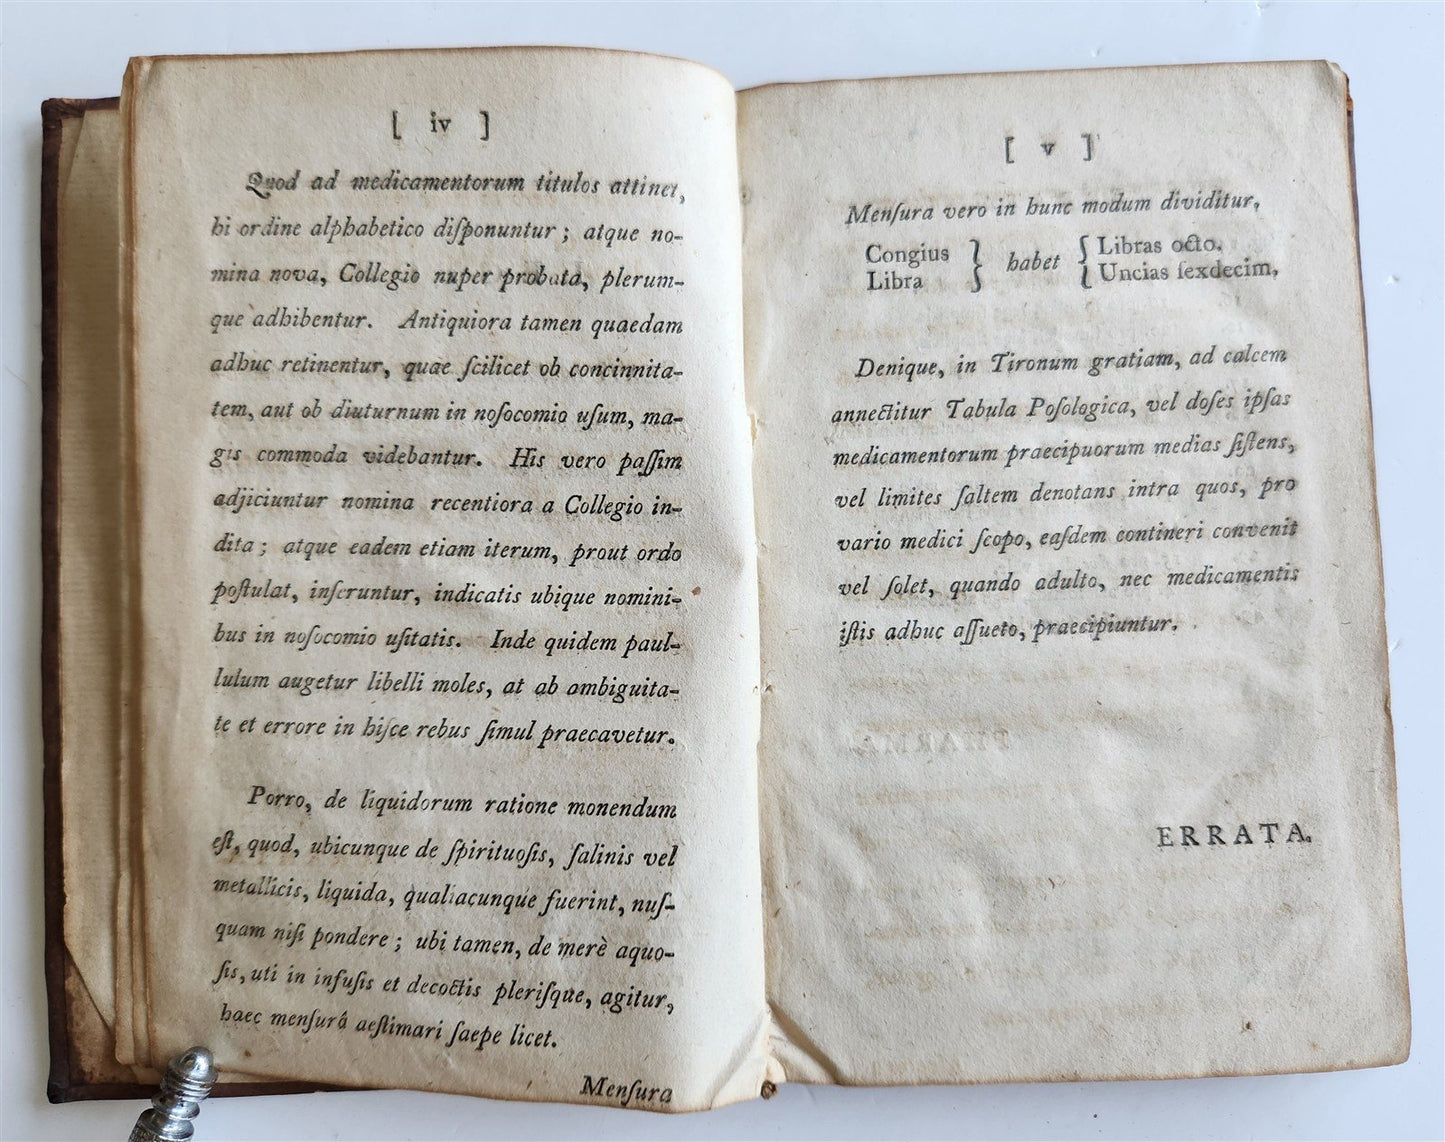 [ iv ]
Quod ad medicamentorum titulos attinet,
hi ordine alphabetico diſponuntur ; atque no-
mina nova, Collegio nuper probata, plerum-
que adhibentur. Antiquiora tamen quaedam
adhuc retinentur, quae ſcilicet ob concinnita-
tem, aut ob diuturnum in noſocomio uſum, ma-
gis commoda videbantur. His vero paſſim
adjiciuntur nomina recentiora a Collegio in-
dita ; atque eadem etiam iterum, prout ordo
poſtulat, inſeruntur, indicatis ubique nomini-
bus in noſocomio uſitatis. Inde quidem paul-
lulum augetur libelli moles, at ab ambiguita-
te et errore in hiſce rebus ſimul praecavetur.
Porro, de liquidorum ratione monendum
eſt, quod, ubicunque de ſpirituoſis, ſalinis vel
metallicis, liquida, qualiacunque fuerint, nuſ-
quam niſi pondere ; ubi tamen, de merè aquo-
ſis, uti in infuſis et decoctis pleriſque, agitur,
haec menſurâ aeſtimari ſaepe licet.
Menſura
[ v ]
Menſura vero in hunc modum dividitur,
Congius } habet { Libras octo.
Libra } habet { Uncias ſexdecim,
Denique, in Tironum gratiam, ad calcem
annectitur Tabula Poſologica, vel doſes ipſas
medicamentorum praecipuorum medias ſiſtens,
vel limites ſaltem denotans intra quos, pro
vario medici ſcopo, eaſdem contineri convenit
vel ſolet, quando adulto, nec medicamentis
iſtis adhuc aſſueto, praecipiuntur.
ERRATA.